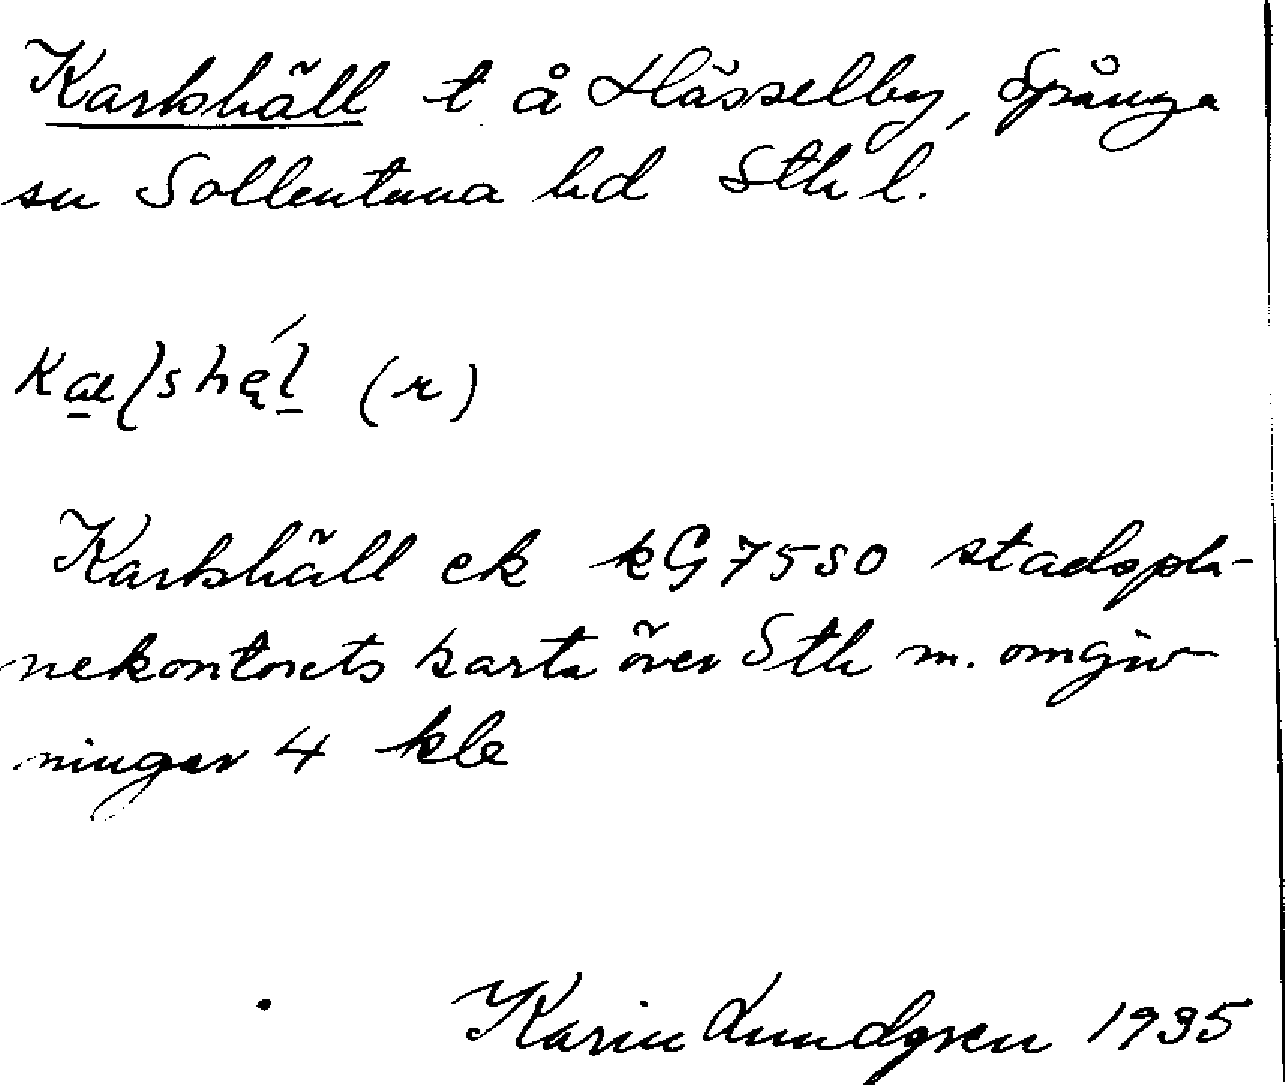 Karlshäll t å Hässelby, Spånga
sn Sollentuna hd Sth l.
(r)
Karlshäll ek kG 7550 stadspla-
nekontorets karta över Sth m. omgiv-
ningar 4 kbl
Karin Lundgren 1935